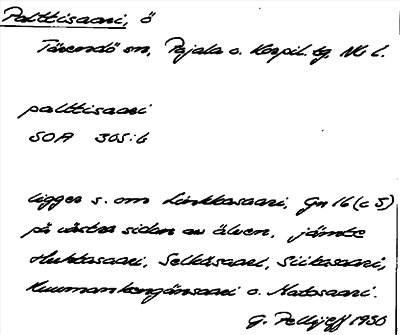 Palttisaari, ö
Tärendö sn, Pajala o. Korpil. tg. Nb l.
palttisaari
SOA 305:6
ligger s. om Linkkasaari, Gn 16 (c 5)
på västra sidan av älven, jämte
Huhtasaari, Selkäsaari, Siikasaari,
Kuumankengänsaari o. Matosaari.
G. Pellijeff 1950